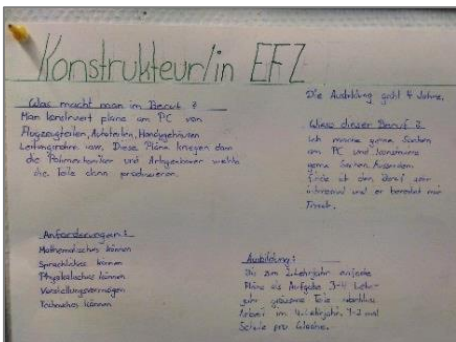 Konstrukteur/in EFZ
Was macht man im Beruf?
Man konstruiert pläne am PC von
Flugzeugteilen, Autoteilen, Handygehäusen
usw. Diese Pläne kriegen dann
die Polimechaniker und welche
die Teile dann produzieren.
Die Ausbildung geht 4 Jahre.
dieser Beruf?
Ich mache gerne Sachen
am PC und
gerne Sachen
finde ich den Beruf
und er bereitet mir
Anforderungen:
Mathematisches können
Sprachliches können
Physikalisches können
Vorstellungsvermögen
Technisches können
Ausbildung:
Bis zum 2. Lehrjahr einfache
Pläne als Aufgabe 3-4 Lehr-
jahr Teile
im 4. Lehrjahr, 1-2 mal
Schule pro Woche.